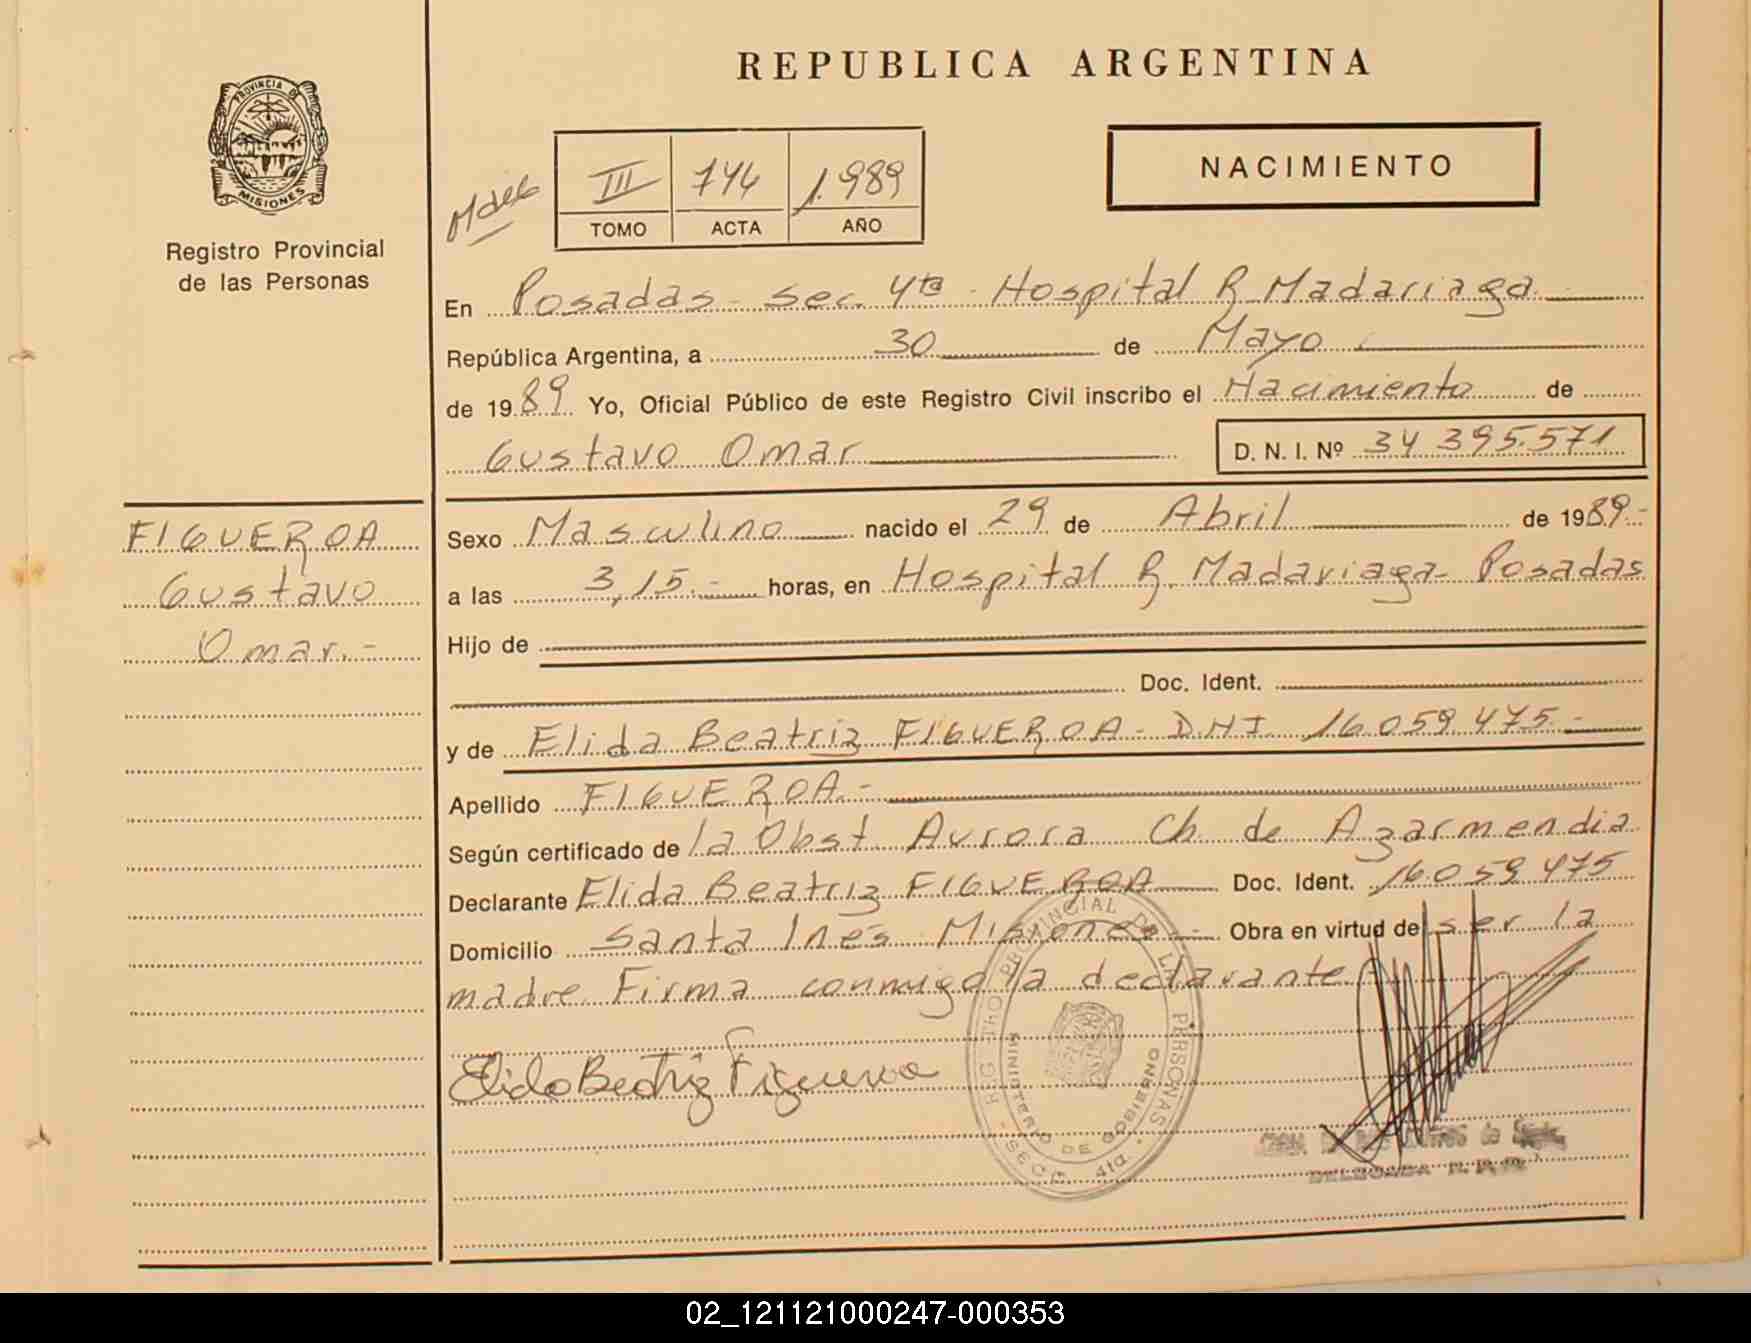 REPUBLICA ARGENTINA
PROVINCIA DE
MISIONES
Registro Provincial
de las Personas
III 744 1.989
TOMO ACTA AÑO
NACIMIENTO
En Posadas - sec. 4ta - Hospital R Madariaga
República Argentina, a 30 de Mayo
de 1989 Yo, Oficial Público de este Registro Civil inscribo el Nacimiento de
Gustavo Omar D. N. I. Nº 34 395.571
FIGUEROA
Gustavo
Omar.-
Sexo Masculino nacido el 29 de Abril de 1989.-
a las 3,15.- horas, en Hospital R. Madariaga - Posadas
Hijo de
Doc. Ident.
y de Elida Beatriz FIGUEROA - DNI 16.059.475.-
Apellido FIGUEROA.-
Según certificado de la Obst. Aurora Ch. de Azarmendia
Declarante Elida Beatriz FIGUEROA Doc. Ident. 16.059.475
Domicilio Santa Inés - Misiones.- Obra en virtud de ser la
madre. Firma conmigo la declarante.-
Elida Beatriz Figueroa
REGISTRO PROVINCIAL DE LAS PERSONAS
MINISTERIO DE GOBIERNO
SECC. 4ta.
DELEGADA R. P. P.
02_121121000247-000353